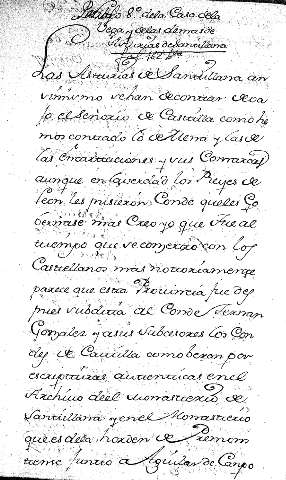 Titulo 8º dela Casa dela
Vega y delas demas de
Asturias de Santillana
Las Asturias de Santillana an
vimismo se han de contar deva
jo el señorio de Castilla como he
mos contado lo de Mena y las de
las Encartaciones y sus Comarcas
aunque en la verdad los Reyes de
Leon les pusieron Conde que les Go
bernase mas Creo yo que fue al
tiempo que se comenzo con los
Castellanos mas notoriamente
parece que esta Provincia fue des
pues subdita al Conde Fernan
Gonzalez y a sus subcesores los Con
des de Castilla como beran por
escripturas autenticas en el
Archivo de el Monasterio de
Santillana y en el Monasterio
que es dela horden de Premons
tense Junto a Aguilar de Campo